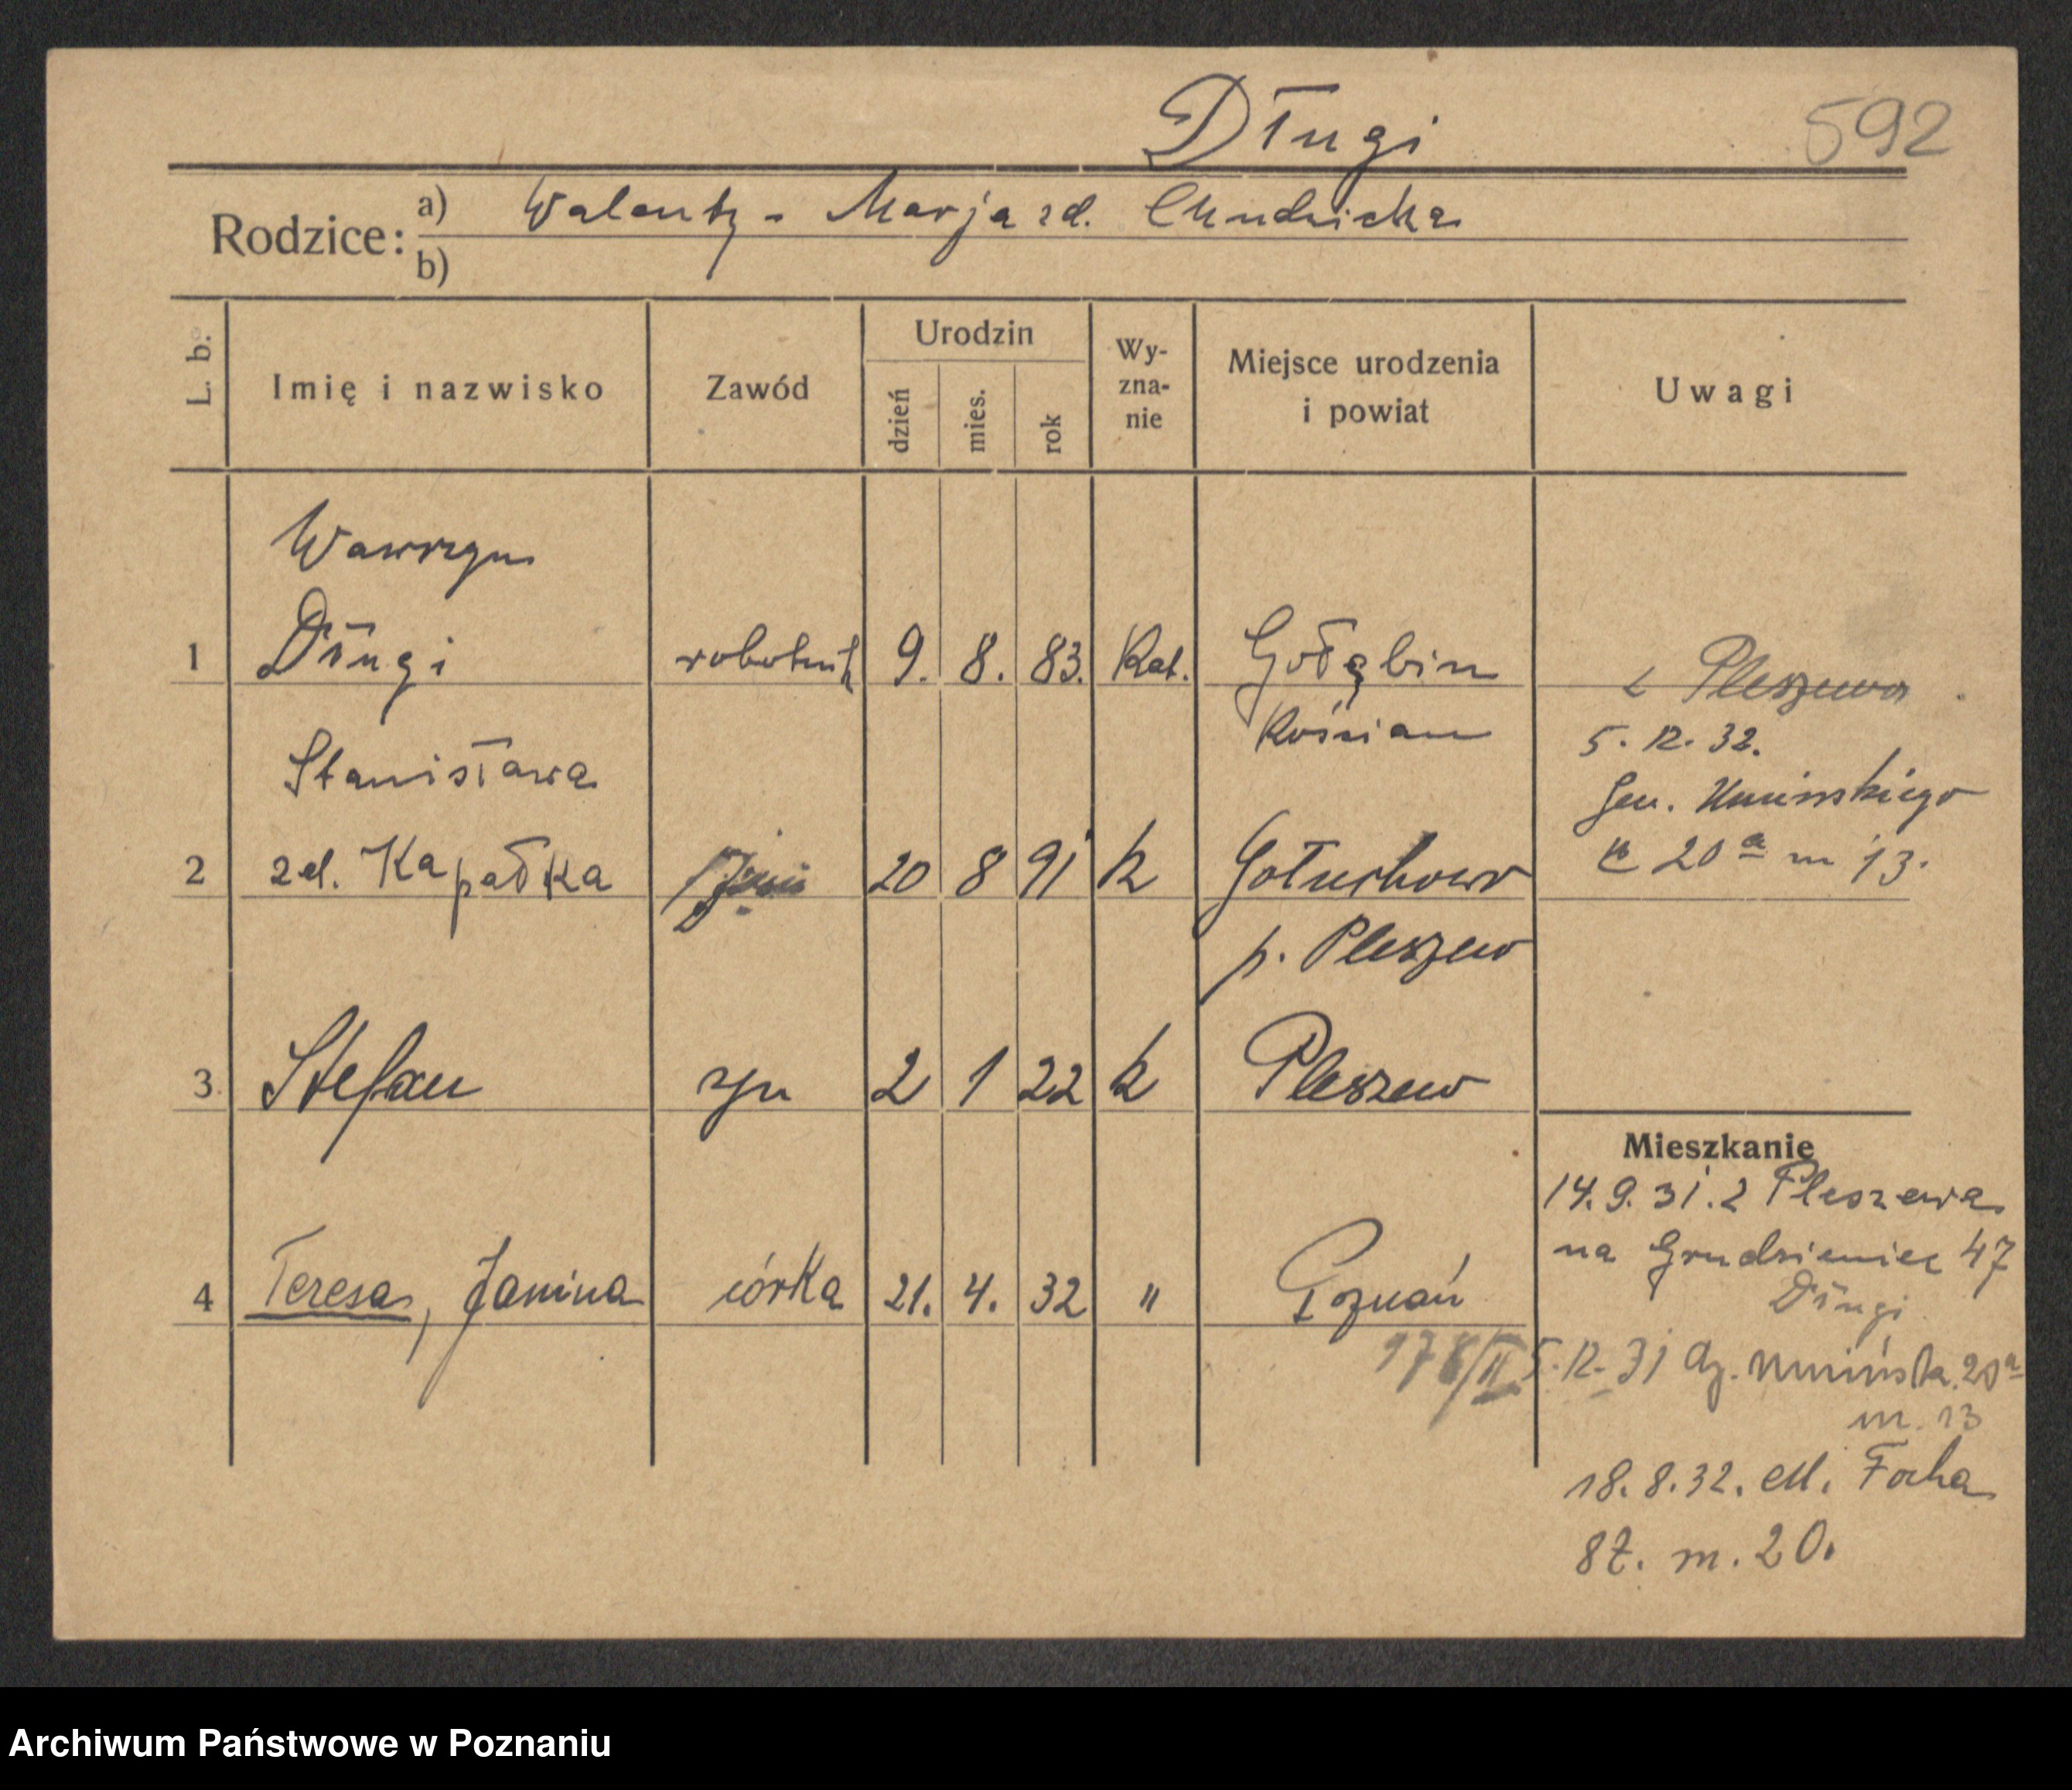 Długi
592
Rodzice:
a) Walenty - Marja zd. Chudzicka
b)
L. b.
Imię i nazwisko
Zawód
Urodzin
dzień
mies.
rok
Wy-
zna-
nie
Miejsce urodzenia
i powiat
Uwagi
Wawrzyn
1 Długi robotnik 9. 8. 83. Kat. Gołębin
Kościan
z Pleszewa
5. 12. 32.
Gen. Umińskiego
20a m 13.
Stanisława
2 zd. Kapałka 20 8 91 k Gołuchow
p. Pleszew
3 Stefan syn 2 1 22 k Pleszew
Mieszkanie
14. 9. 31. z Pleszewa
na Grudzieniec 47
Długi
4 Teresa, Janina córka 21. 4. 32 " Poznań
178/II
5. 12. 31 Umińska 20a
m. 13
18. 8. 32. M. Focha
m. 20.
Archiwum Państwowe w Poznaniu